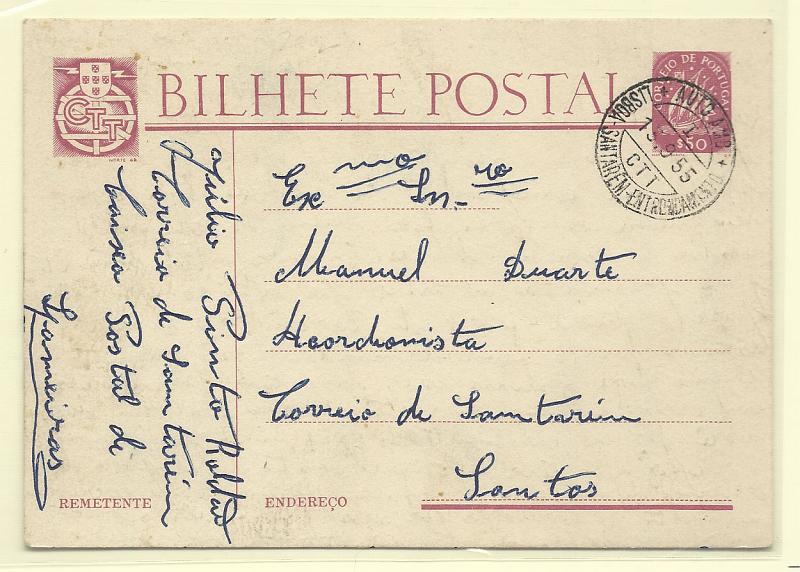 BILHETE POSTAL
CTT
CORREIO DE PORTUGAL
$50
LISBOA-SANTARÉM-ENTRONCAMENTO
CTT
Exmo Snr.ro
Manuel Duarte
Acordionista
Correio de Santarém
Santos
Júlio Pinto
Correio de Santarém
Caixa Postal de
REMETENTE
ENDEREÇO